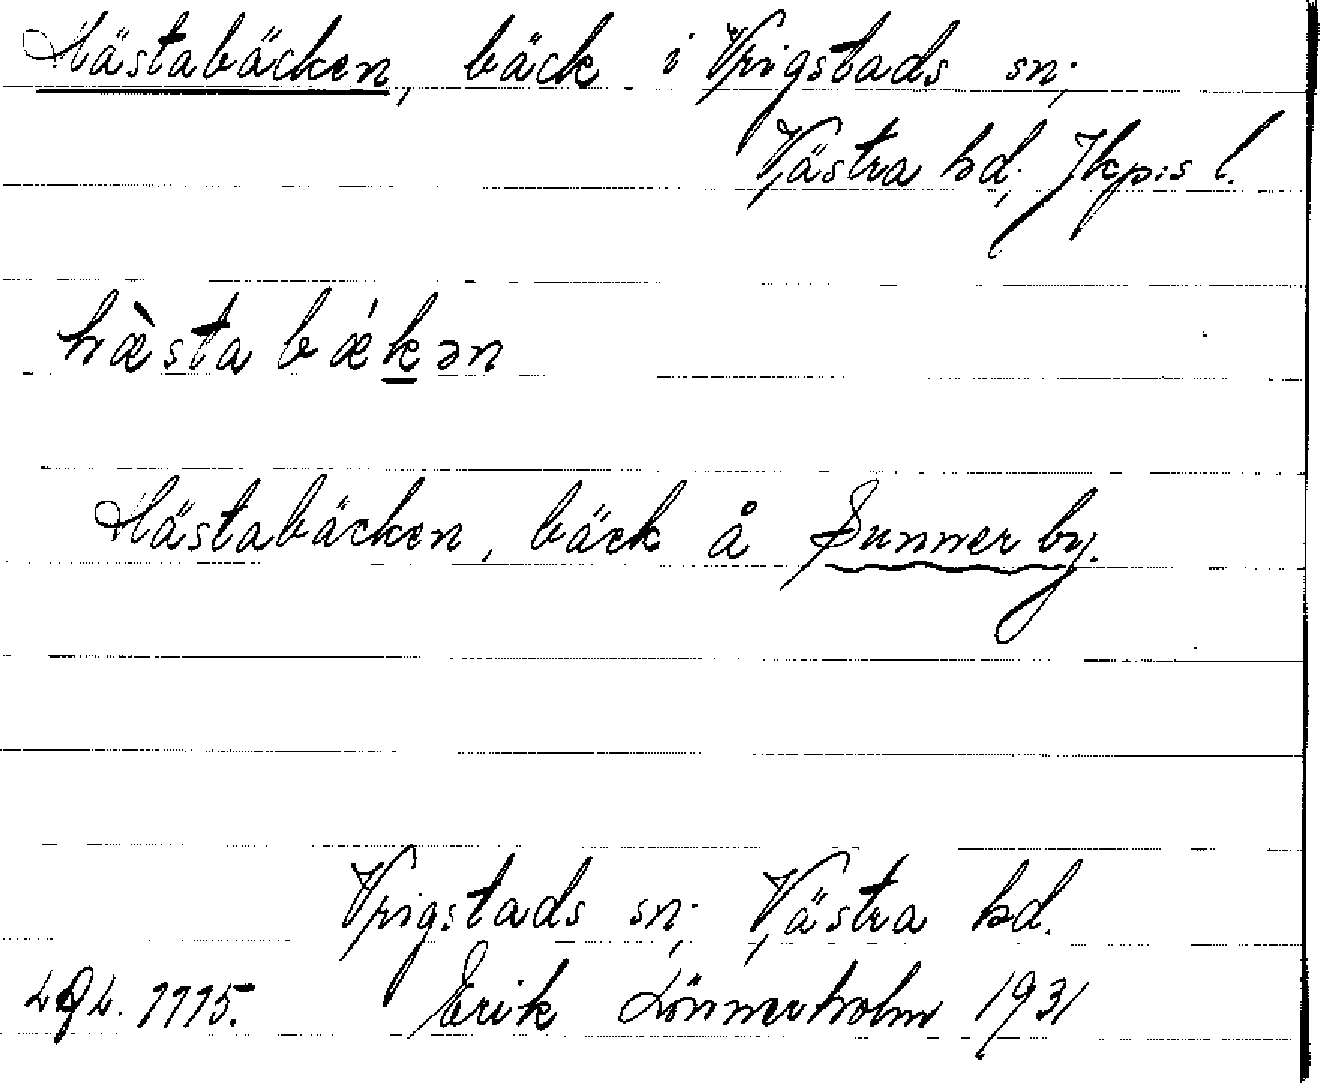 Hästabäcken, bäck i Vrigstads sn;
Västra hd; Jkp:s l.
hæ̀sta bǽkən
Hästabäcken, bäck å Sunnerby.
Vrigstads sn; Västra hd.
1115. Erik Lönnerholm 1931